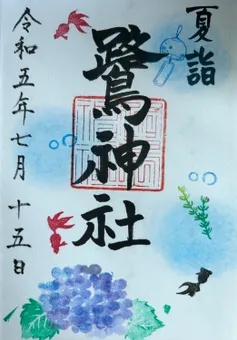 夏詣
鷲神社
令和五年七月十五日